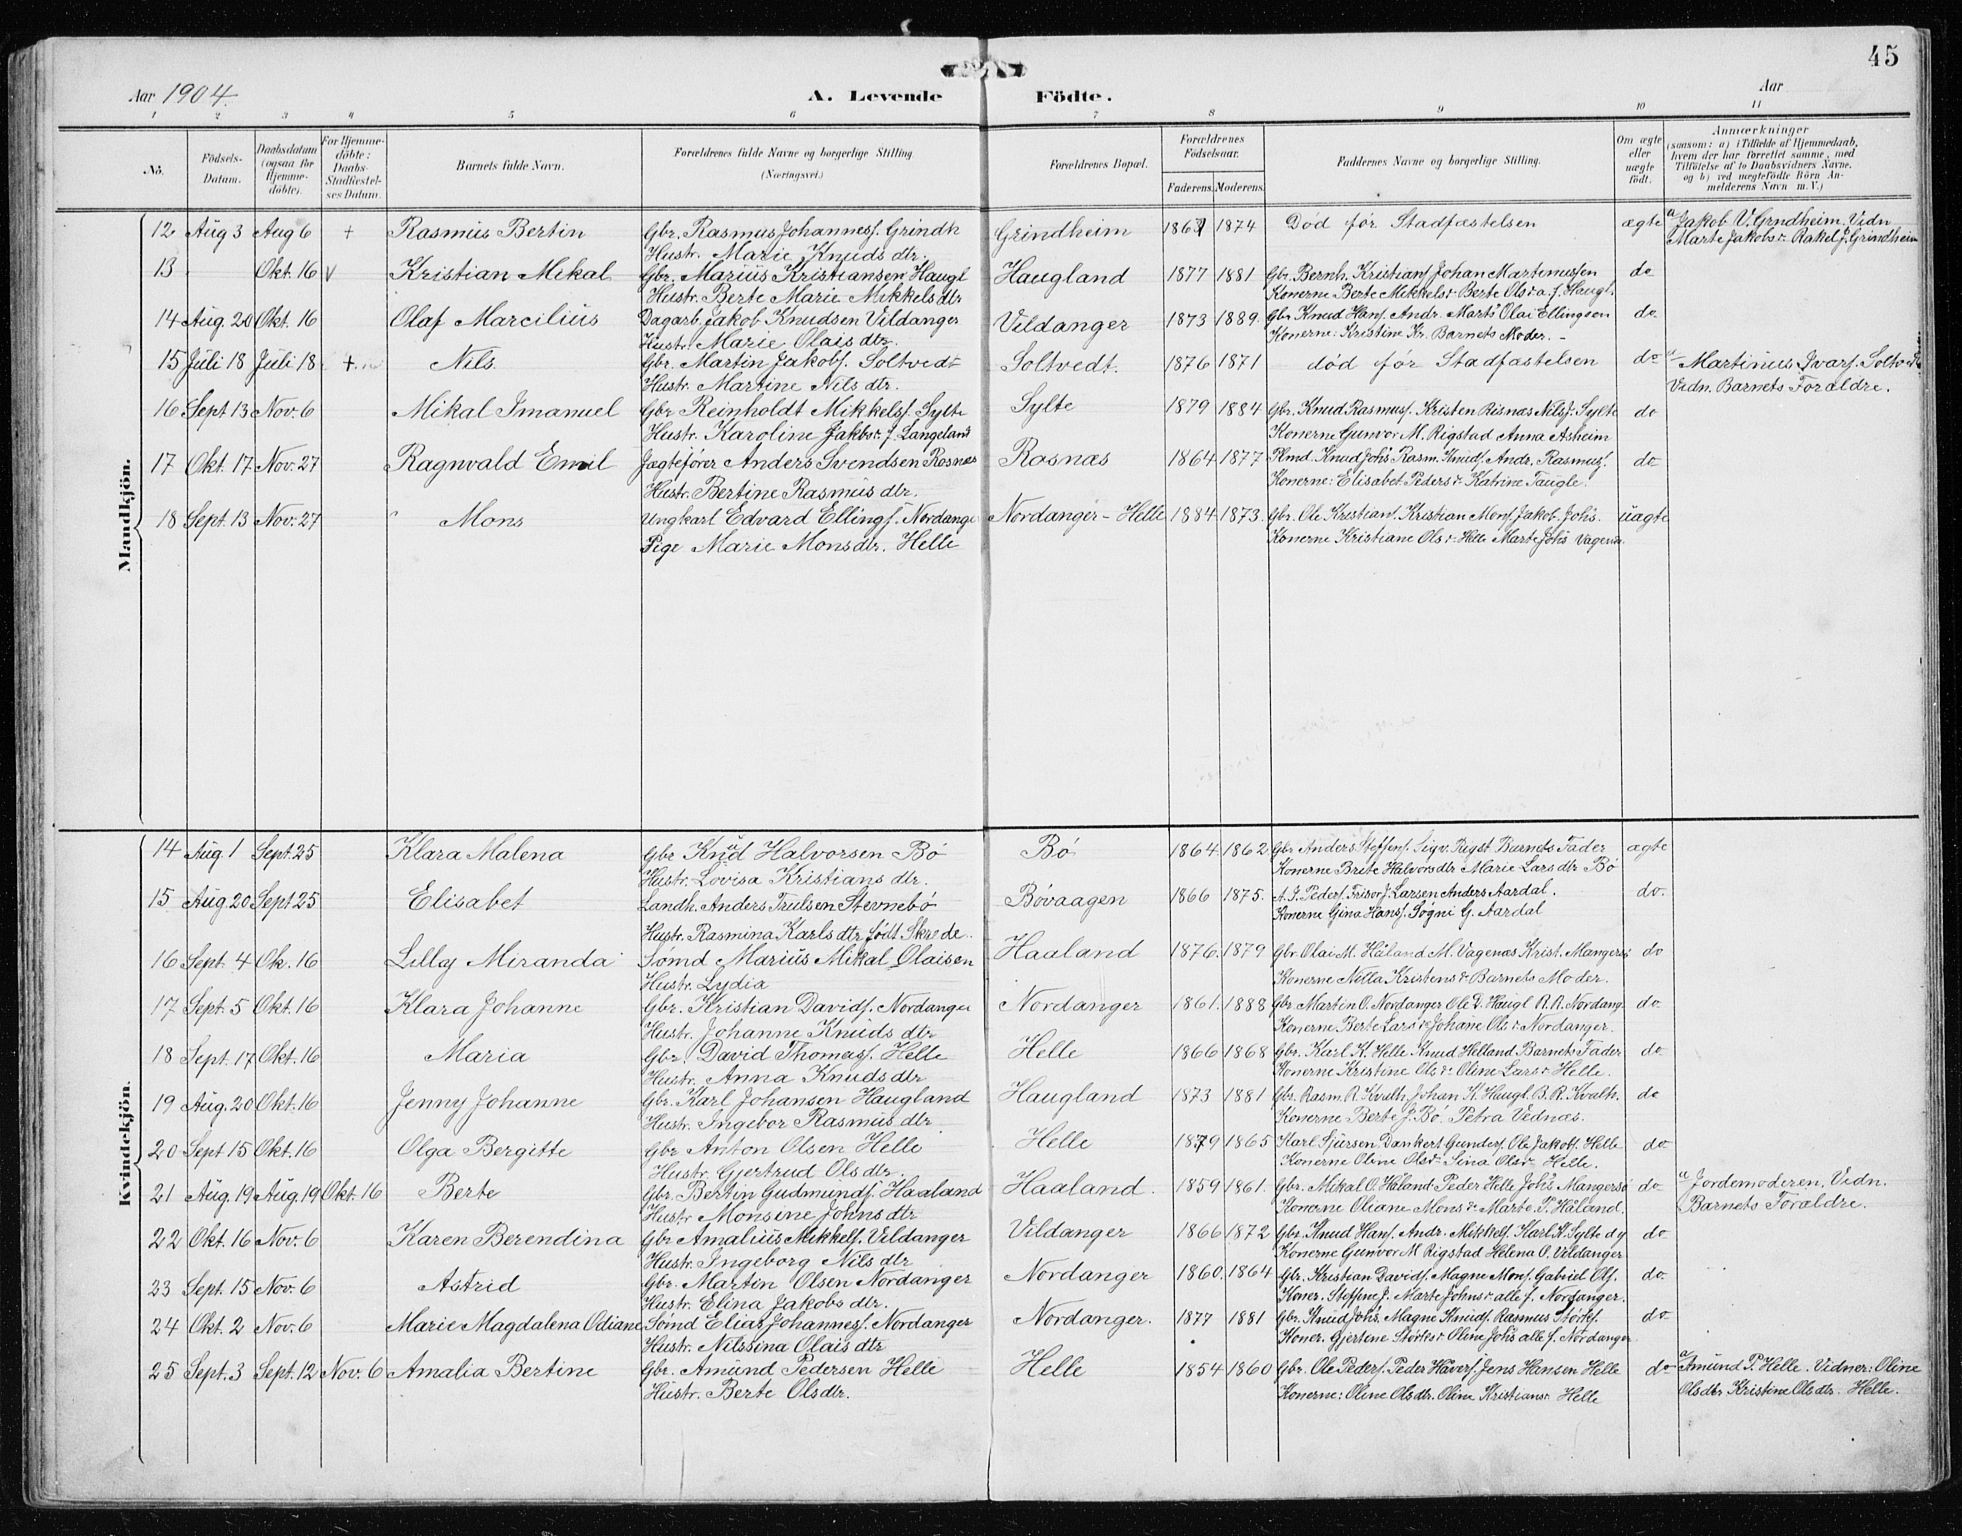 45
Aar 1904.
A. Levende Födte.
Aar
1 2 3 4 5 6 7 8 9 10 11
No.
Födsels-Datum.
Daabsdatum (ogsaa for Hjemme-döbte).
For Hjemme-döbte: Daabs-Stadfæstel-ses Datum.
Barnets fulde Navn.
Forældrenes fulde Navne og borgerlige Stilling (Næringsvei.)
Forældrenes Bopæl.
Forældrenes Födselsaar.
Faderens. Moderens.
Faddernes Navne og borgerlige Stilling.
Om ægte eller uægte født.
Anmærkninger
(saasom: a) i Tilfælde af Hjemmedaab, hvem der har forrettet samme, med Tilföielse af to Daabsvidners Navne, og b) ved uægtefödte Börn An-melderens Navn m. V.)
Mandkjön.
12 Aug 3 Aug 6 + Rasmus Bertin Gbr. Rasmus Johannesf. Grindh Grindheim 1867 1874 Död før Stadfæstelsen ægte a Jakob V. Grndheim. Vidn
Hustr. Marie Knuds dtr. Marte Jakobsd. Rakel J. Grindheim
13 Okt. 16 v Kristian Mikal Gbr. Marius Kristiansen Haugl Haugland 1877 1881 Gbr. Bernh. Kristianf Johan Martinussen do
Hustr. Berte Marie Mikkels dtr Konerne Berte Mikkelsd. Berte Olsd a. f. Haugl.
14 Aug. 20 Okt. 16 Olaf Marcilius Dagarb. Jakob Knudsen Vildanger Vildanger 1873 1889. Gbr Knud Hanf Andr. Marts Olai Ellingsen do
Hustr. Marie Olais dtr. Konerne: Kristine Kr. Barnets Moder. -
15 Juli 18 Juli 18 + Nils Gbr. Martin Jakobf. Soltvedt Soltvedt. 1876 1871 död før Stadfæstelsen do a Martinus Ivarf. Soltvedt
Hustr. Martine Nils dtr. Vidn. Barnets Forældre.
16 Sept 13 Nov. 6 Mikal Imanuel Gbr Reinholdt Mikkelsf. Sylte Sylte 1879 1884 Gbr. Knud Rasmusf. Kristen Risnæs Nilsf. Sylte do
Hustr. Karoline Jakbsd. f. Langeland Konerne Gunvor M. Rigstad Anna Asheim
17 Okt. 17 Nov. 27 Ragnvald Emil Jægtefører Anders Svendsen Rosnæs Rosnæs 1864 1877 Knud Johs Rasm. Knudf. Andr. Rasmusf. do
Hustr. Bertine Rasmus dtr. Konerne: Elisabet Peders d. Katrine Taugle.
18 Sept. 13 Nov. 27 Mons Ungkarl Edvard Ellingf. Nordange Nordanger - Helle 1884 1873. Gbr. Ole Kristianf. Kristian Monf. Jakob. Johs. uægte
Pige Marie Mons dtr. Helle Konerne Kristiane Ols d. Helle Marte Johs Vagenæs
Kvindekjön.
14 Aug 1 Sept. 25 Klara Malena Gbr Knud Halvorsen Bö Bö 1864. 1862 Gbr Anders Steffenf. Sigv. Rigst Barnets Fader ægte
Hustr. Lovisa Kristians dtr. Konerne Brite Halvors dtr Marie Lars dtr Bö
15 Aug 20 Sept 25 Elisabet Landh. Anders Trulsen Stevnebö Bövaagen 1866 1875. A. J. Pedersf. Frisør J. Larsen Anders Aardal. do.
Hustr. Rasmina Karls dtr. født Skrøde. Konerne Gina Hansf. Sögni G. Aardal
16 Sept. 4 Ok. 16 Lilly Miranda Sømd Marius Mikal Olaisen Haaland 1876. 1879 Gbr Olai M. Håland M. Vagenæs Krist. Mangersö do
Hustr. Lydia Konerne Nella Kristens d. Barnets Moder.
17 Sept. 5 Okt. 16 Klara Johanne Gbr. Kristian Davidf. Nordanger Nordanger 1861. 1888 Gbr Martin O. Nordanger Ole D. Haugl R. R. Nordang. do
Hustr. Johanne Knuds dtr Konerne Berte Larsd. Johane Ols d. Nordanger.
18 Sept. 17 Okt. 16 Maria Gbr. David Thomasf. Helle Helle 1866 1868 Gbr. Karl K. Helle Knud Helland Barnets Fader do
Hustr. Anna Knuds dtr Konerne Kristine Ols d. Oline Lars d. Helle.
19 Aug. 20 Okt. 16 Jenny Johanne Gbr. Karl Johansen Haugland Haugland 1873 1881 Gbr. Rasm. R. Kvalh. Johan K. Haugl. B. R. Kvalh. do
Hustr. Ingebor Rasmus dtr. Konerne Berte J. Bö Petra Vednæs.
20 Sept 15 Okt. 16 Olga Bergitte Gbr Anton Olsen Helle Helle 1879 1865 Karl Sjursen Dankert Gundersf. Ole Jakobf. Helle do
Hustr. Gjertrud Ols dtr. Konerne Oline Olsd. Sina Olsd. Helle.
21 Aug. 19 Aug. 19 Okt. 16 Berte Gbr. Bertin Gudmundsf. Haaland Haaland. 1859 1861. Gbr. Mikal O. Håland Peder Helle Johs Mangersö do a Jordemoderen. Vidn.
Hustr Monsine Johns dtr Konerne Oliane Mons d. Marte P. Håland. Barnets Forældre.
22 Okt. 16 Nov. 6 Karen Berendina Gbr Amalius Mikkelsf. Vildanger Vildanger 1866 1872 Gbr. Knud Hanf. Andr. Mikkelsf. Karl K. Sylte dy do
Hustr. Ingeborg Nils dtr Konerne Gunvor M Rigstad Helena O. Vildanger
23 Sept. 15 Nov. 6 Astrid Gbr. Martin Olsen Nordanger Nordanger 1860. 1864 Gbr. Kristian Davidf. Magne Monf. Gabriel Olf. do
Hustr. Elina Jakobs dtr. Koner. Steffine J. Marte Johns d. alle f. Nordanger.
24 Okt. 2 Nov. 6 Marie Magdalena Odiane Sömd Elias Johannesf. Nordanger Nordanger. 1877 1881 Gbr. Knud Johs. Magne Knudf. Rasmus Störkf. do
Hustr. Nilssina Olais dtr Koner. Gjertine Störksd. Oline Johs alle f. Nordanger
25 Sept. 3 Sept. 12 Nov. 6 Amalia Bertine Gbr. Amund Pedersen Helle Helle 1854 1860 Gbr. Ole Pedersf. Peder Håversf. Jens Hansen Helle do a Amund P. Helle. Vidner: Oline
Hustr. Berte Olsdtr. Konerne: Oline Olsdtr. Oline Kristiansd. Helle Olsdtr Kristine Olsdtr. Helle.